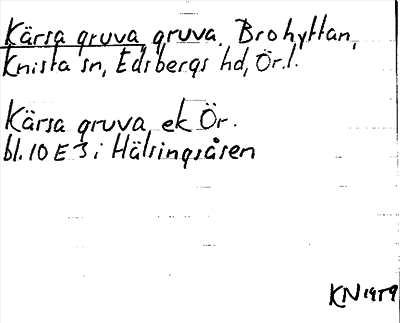 Kärsa gruva, gruva. Brohyttan,
Knista sn, Edsbergs hd, Ör.l.
Kärsa gruva, ek Ör.
bl.10E3i Hälsingsåsen
KN 1959